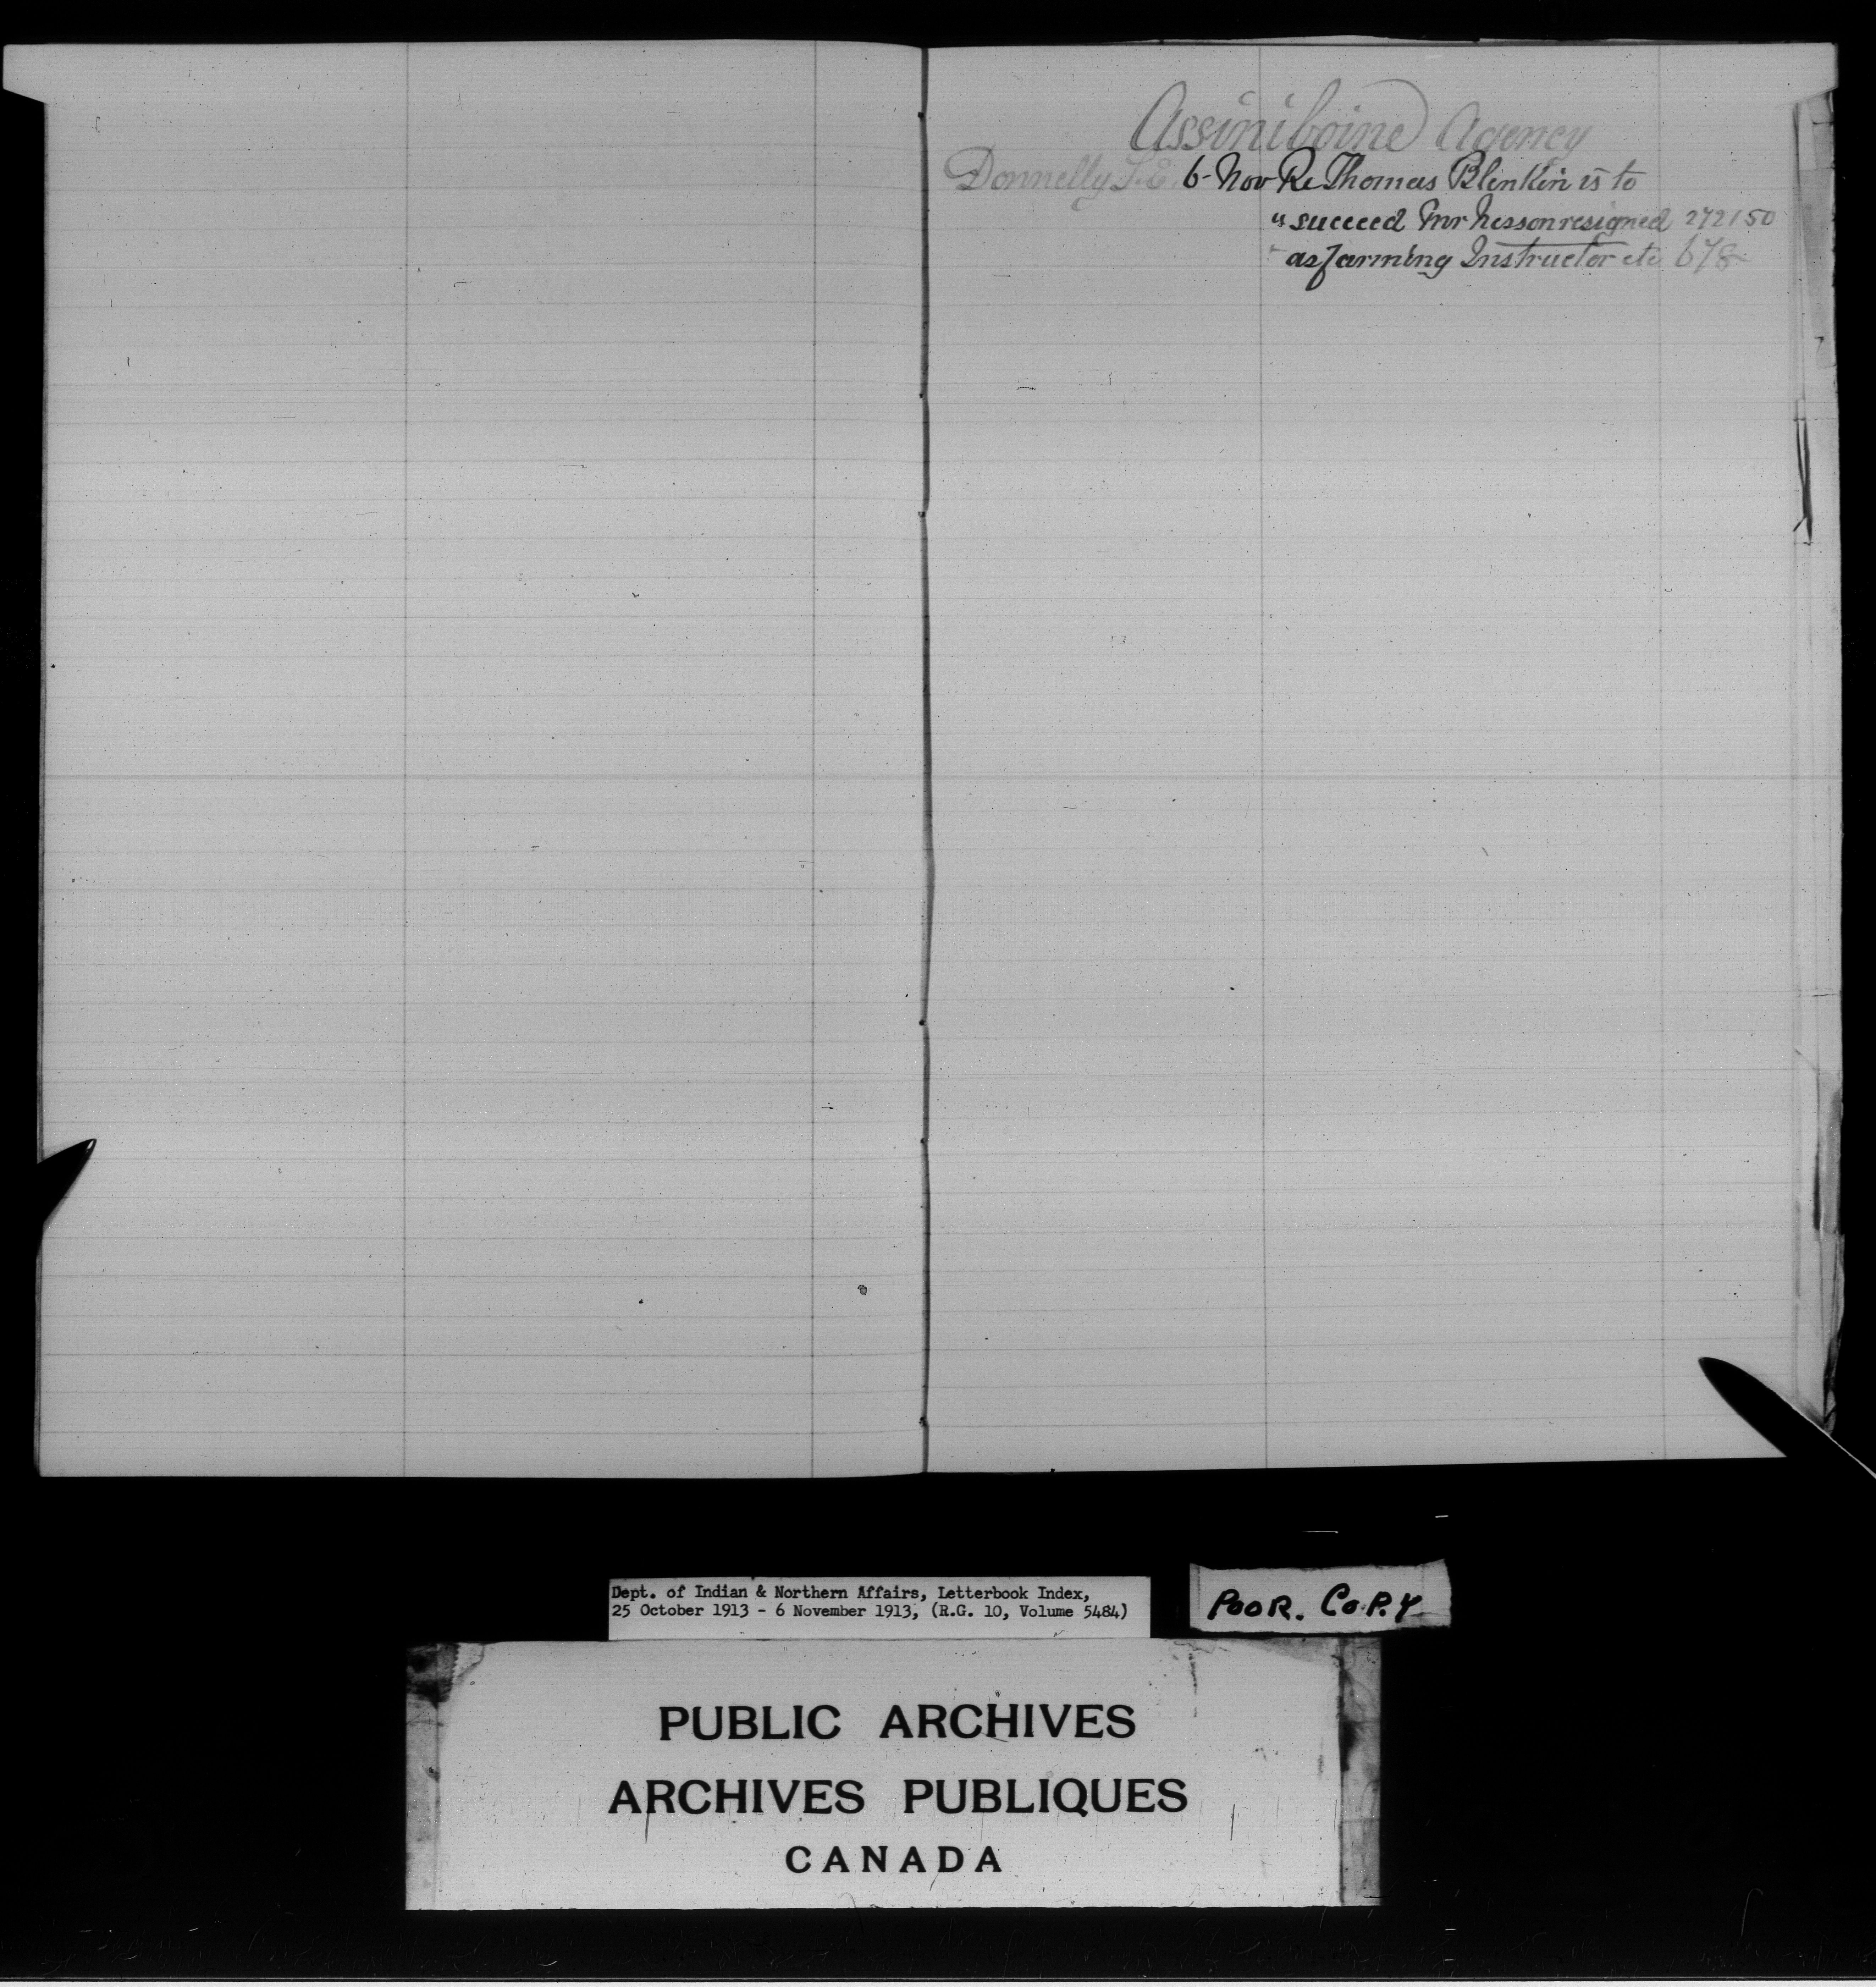 Assiniboine Agency
Donnelly T.E. 6- Nov Re Thomas Blenkin is to
" succeed Mr Nesson resigned 272150
" as farming Instructor etc 678
Dept. of Indian & Northern Affairs, Letterbook Index,
25 October 1913 - 6 November 1913, (R.G. 10, Volume 5484)
POOR. COPY
PUBLIC ARCHIVES
ARCHIVES PUBLIQUES
CANADA